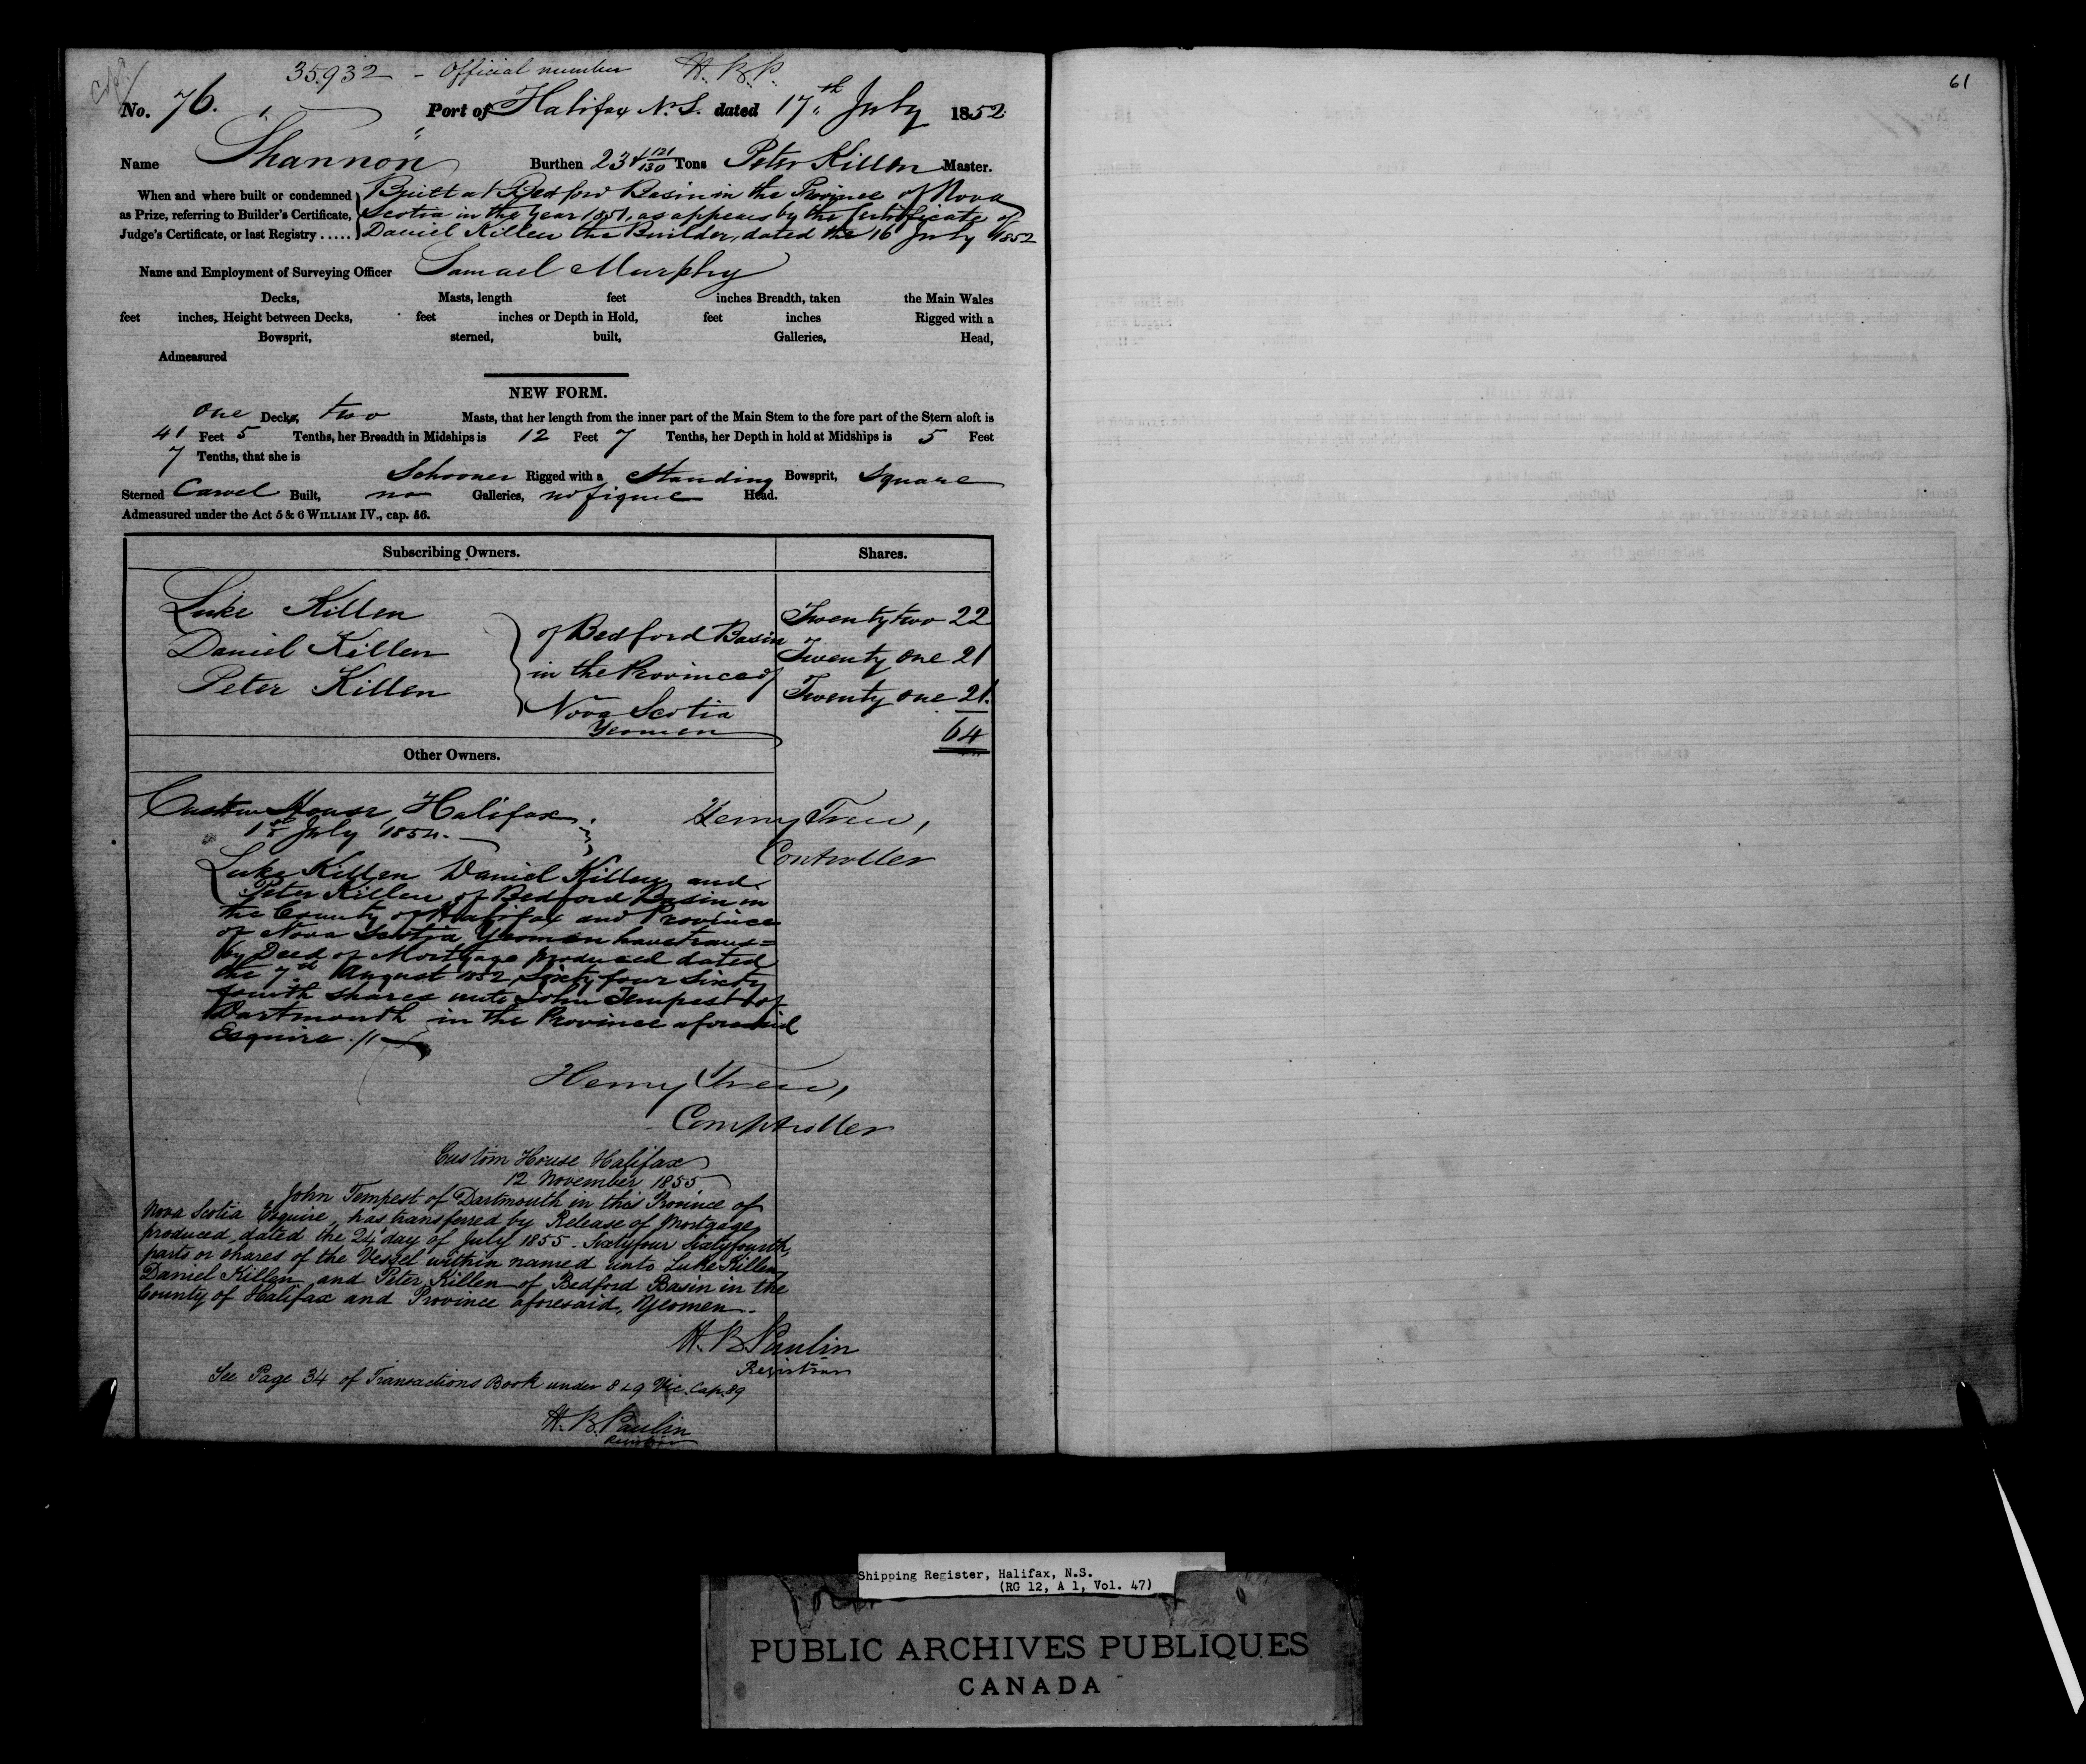 35.932 - Official number H. B. P.
No. 76. Port of Halifax N.S. dated 17th July 1852
Name "Shannon" Burthen 23 121/130 Tons Peter Killen Master.
When and where built or condemned as Prize, referring to Builder's Certificate, Judge's Certificate, or last Registry.....
Built at Bedford Basin in the Province of Nova
Scotia in the Year 1851, as appears by the Certificate of
Daniel Killen the Builder, dated the 16 July 1852
Name and Employment of Surveying Officer Samael Murphy
Decks, Masts, length feet inches Breadth, taken the Main Wales
feet inches, Height between Decks, feet inches or Depth in Hold, feet inches Rigged with a
Bowsprit, sterned, built, Galleries, Head,
Admeasured
NEW FORM.
one Decks, two Masts, that her length from the inner part of the Main Stem to the fore part of the Stern aloft is
41 Feet 5 Tenths, her Breadth in Midships is 12 Feet 7 Tenths, her Depth in hold at Midships is 5 Feet
7 Tenths, that she is
Schooner Rigged with a Standing Bowsprit, Square
Sterned Carvel Built, no Galleries, no figure Head.
Admeasured under the Act 5 & 6 WILLIAM IV., cap. 56.
Subscribing Owners. Shares.
Luke Killen Twenty two 22
Daniel Killen Twenty one 21
Peter Killen Twenty one 21.
of Bedford Basin
in the Province of
Nova Scotia
Yeomen
64
Other Owners.
Custom House, Halifax.
1st July 1854.
Henry Trew,
Controller
Luke Killen Daniel Killen and
Peter Killen of Bedford Basin in
the County of Halifax and Province
of Nova Scotia Yeomen have trans=
by Deed of Mortgage produced dated
the 7th August 1852 Sixty four Sixty
fourth shares unto John Tempest of
Dartmouth in the Province aforesaid
Esquire.
Henry Trew,
Comptroller
Custom House Halifax
12 November 1855
John Tempest of Dartmouth in this Province of
Nova Scotia Esquire, has transferred by Release of Mortgage
produced, dated the 24 day of July 1855 - Sixtyfour Sixtyfourth,
parts or shares of the Vessel within named unto Luke Killen
Daniel Killen and Peter Killen of Bedford Basin in the
County of Halifax and Province aforesaid, Yeomen.
H. B. Paulin
Registrar
See Page 34 of Transactions Book under 8 & 9 Vic. Cap. 89
H. B. Paulin
Registrar
61
Shipping Register, Halifax, N.S.
(RG 12, A 1, Vol. 47)
PUBLIC ARCHIVES PUBLIQUES
CANADA